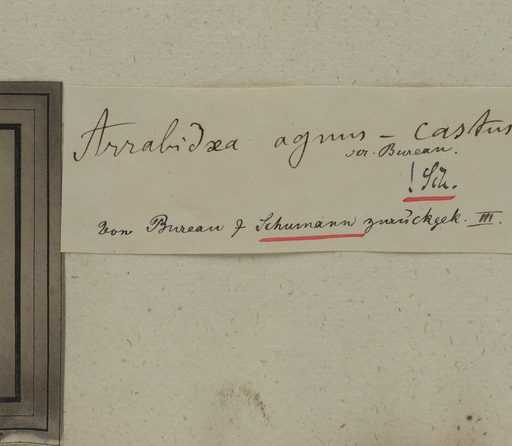 Arrabidæa agnus - castus
Bureau.
! Sch.
von Bureau & Schumann zurückgek. III.